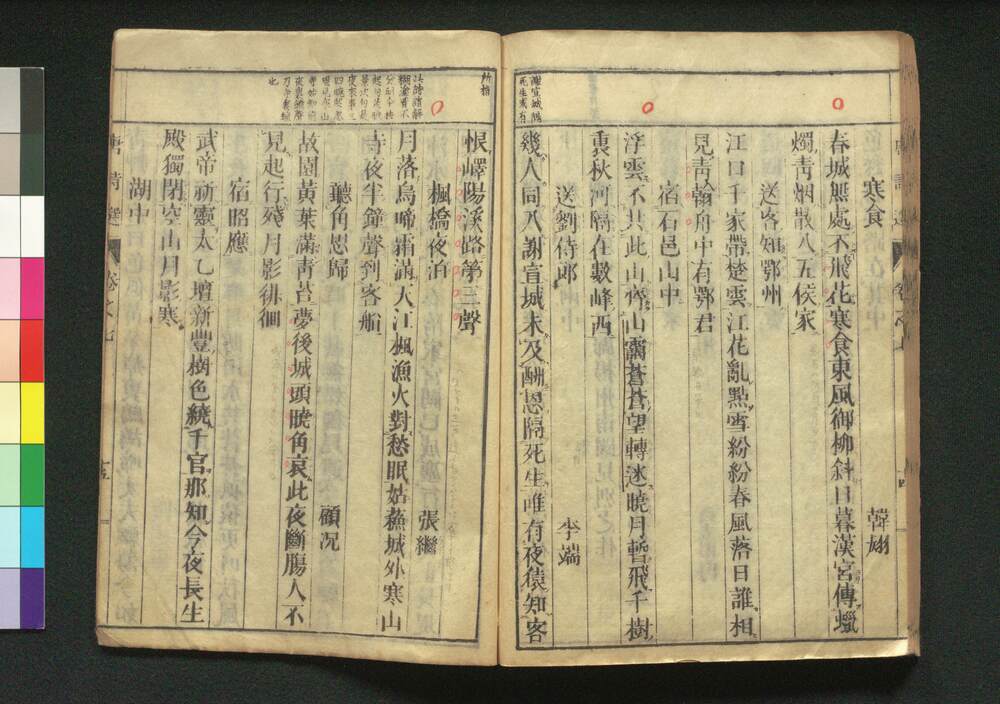 寒食　韓翃
春城無處不飛花寒食東風御柳斜日暮漢宮傳蠟
燭靑烟散入五侯家
送客知鄂州
江口千家帶楚雲江花亂點雪紛紛春風落日誰相
見靑翰舟中有鄂君
宿石邑山中
浮雲不共此山齊山靄蒼蒼望轉迷曉月暫飛千樹
裏秋河隔在數峰西
送劉侍郎　李端
幾人同入謝宣城未及酬恩隔死生唯有夜猿知客
恨嶧陽溪路第三聲
楓橋夜泊　張繼
月落烏啼霜滿天江楓漁火對愁眠姑蘇城外寒山
寺夜半鐘聲到客船
聽角思歸　顧况
故園黃葉滿靑苔夢後城頭曉角哀此夜斷腸人不
見起行殘月影徘徊
宿昭應
武帝祈靈太乙壇新豐樹色繞千官那知今夜長生
殿獨閉空山月影寒
湖中
唐詩選　卷之七